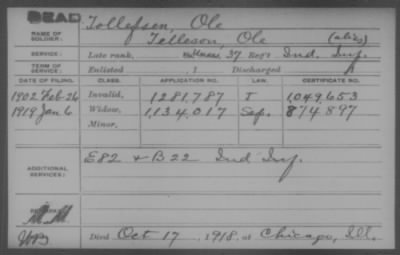 DEAD
Tollefsen, Ole
NAME OF SOLDIER: Telleson, Ole (alias)
SERVICE: Late rank, 37 Reg't Ind. Inf.
TERM OF SERVICE: Enlisted , 1 Discharged
DATE OF FILING. CLASS. APPLICATION NO. LAW. CERTIFICATE NO.
1902 Feb-26 Invalid, 1,281,787 I 1,049,653
1919 Jan 6 Widow, 1,134,017 Sep. 874897
Minor,
ADDITIONAL SERVICES: E82 & B22 Ind Inf.
Died Oct 17, 1918, at Chicago, Ill.